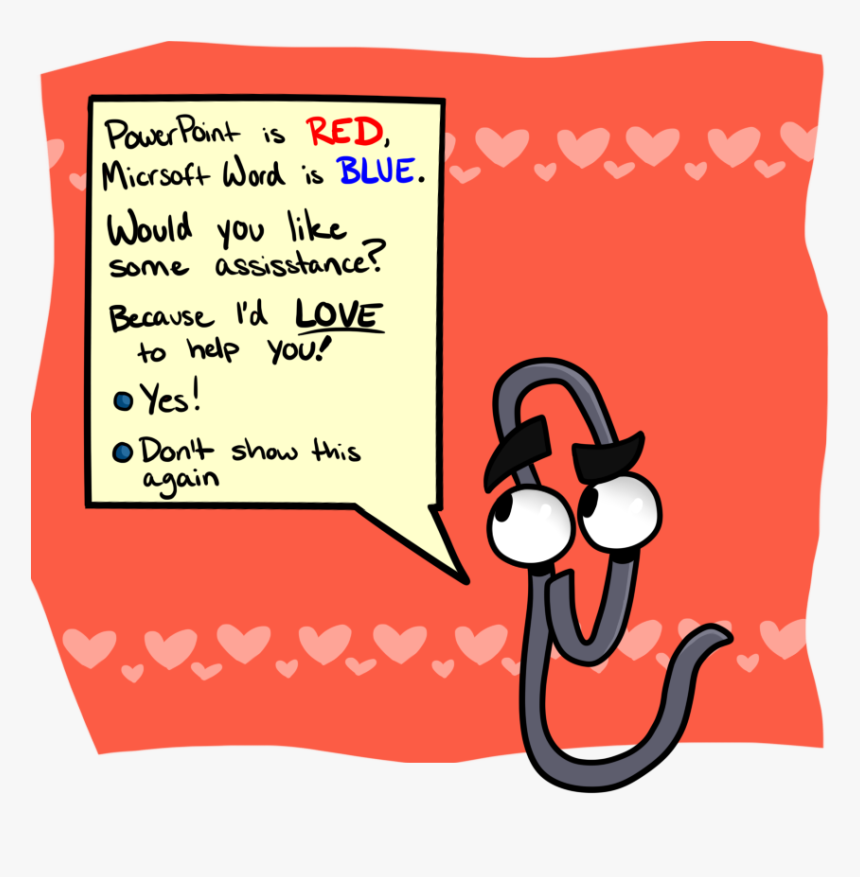 PowerPoint is RED,
Micrsoft Word is BLUE.
Would you like
some assisstance?
Because I'd LOVE
to help you!
Yes!
Don't show this
again